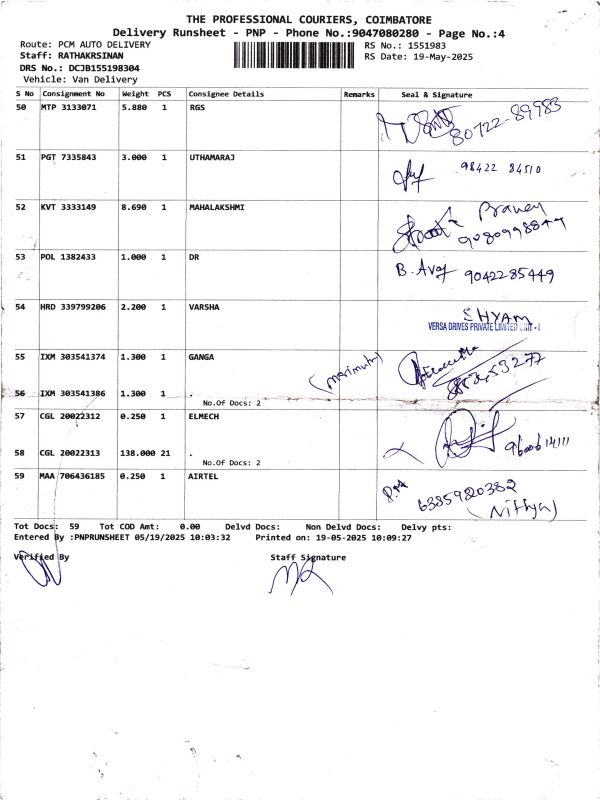 THE PROFESSIONAL COURIERS, COIMBATORE
Delivery Runsheet - PNP - Phone No.:9047080280 - Page No.:4
Route: PCM AUTO DELIVERY RS No.: 1551983
Staff: RATHAKRSINAN RS Date: 19-May-2025
DRS No.: DCJB155198304
Vehicle: Van Delivery
S No Consignment No Weight PCS Consignee Details Remarks Seal & Signature
50 MTP 3133071 5.880 1 RGS
80722-89983
51 PGT 7335843 3.000 1 UTHAMARAJ
98422 84510
52 KVT 3333149 8.690 1 MAHALAKSHMI
Praney
9080998849
53 POL 1382433 1.000 1 DR
9042285449
54 HRD 339799206 2.200 1 VARSHA
SHYAM
VERSA DRIVES PRIVATE LIMITED UNIT - I
55 IXM 303541374 1.300 1 GANGA
56 IXM 303541386 1.300 1 .
No.Of Docs: 2
57 CGL 20022312 0.250 1 ELMECH
58 CGL 20022313 138.000 21 .
No.Of Docs: 2
59 MAA 706436185 0.250 1 AIRTEL
(Nithya)
Tot Docs: 59 Tot COD Amt: 0.00 Delvd Docs: Non Delvd Docs: Delvy pts:
Entered By :PNPRUNSHEET 05/19/2025 10:03:32 Printed on: 19-05-2025 10:09:27
Verified By Staff Signature